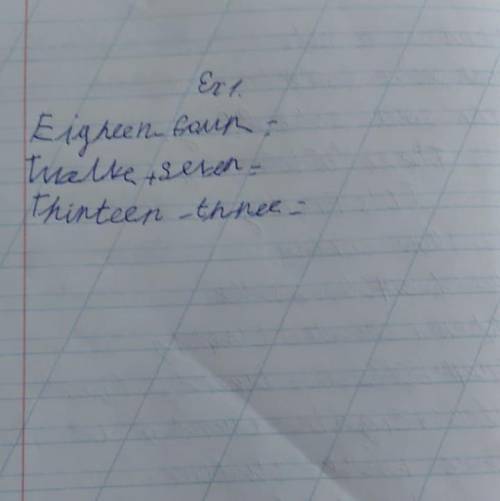 Ex 1.
Eigheen - four =
Twelve + seven =
Thirteen - three =